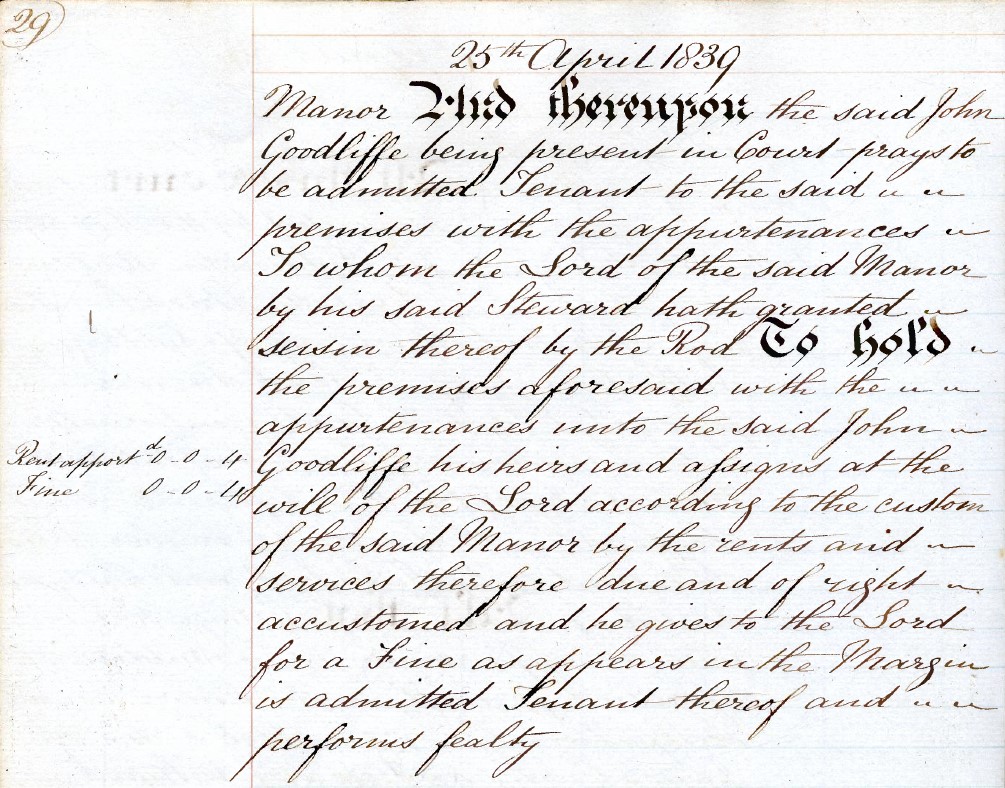 29
25th April 1839
Manor And thereupon the said John
Goodliffe being present in Court prays to
be admitted Tenant to the said
premises with the appurtenances
To whom the Lord of the said Manor
by his said Steward hath granted
seisin thereof by the Rod To hold
the premises aforesaid with the
appurtenances unto the said John
Rent apportd 0-0-4
Goodliffe his heirs and assigns at the
Fine 0-0-4
will of the Lord according to the custom
of the said Manor by the rents and
services therefore due and of right
accustomed and he gives to the Lord
for a Fine as appears in the Margin
is admitted Tenant thereof and
performs fealty